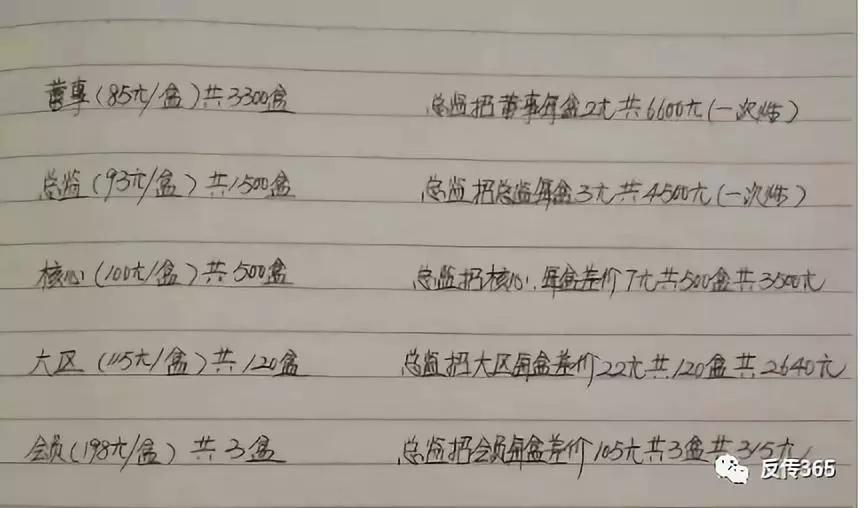 董事(85元/盒)共3300盒 总监招董事每盒2元共6600元(一次性)
总监(93元/盒)共1500盒 总监招总监每盒3元共4500元(一次性)
核心(100元/盒)共500盒 总监招核心,每盒差价7元共500盒共3500元
大区(115元/盒)共120盒 总监招大区每盒差价22元共120盒共2640元
会员(198元/盒)共3盒 总监招会员每盒差价105元共3盒共315元
反传365